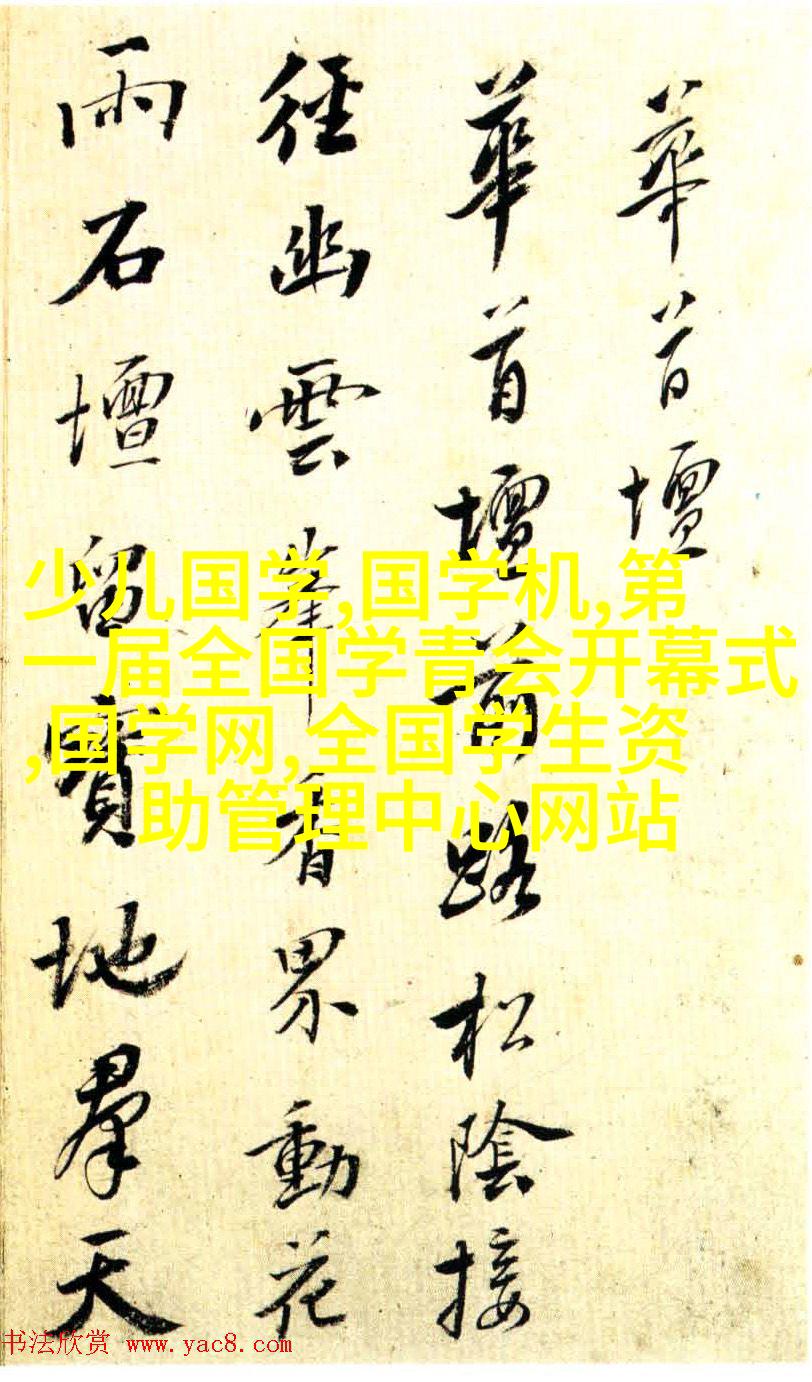 華首壇
華首壇前路松陰接
徑幽雲峰香界動花
雨石壇留寶地羣天
少儿国学,国学机,第
一届全国学青会开幕式
,国学网,全国学生资
助管理中心网站
书法欣赏 www.yac8.com